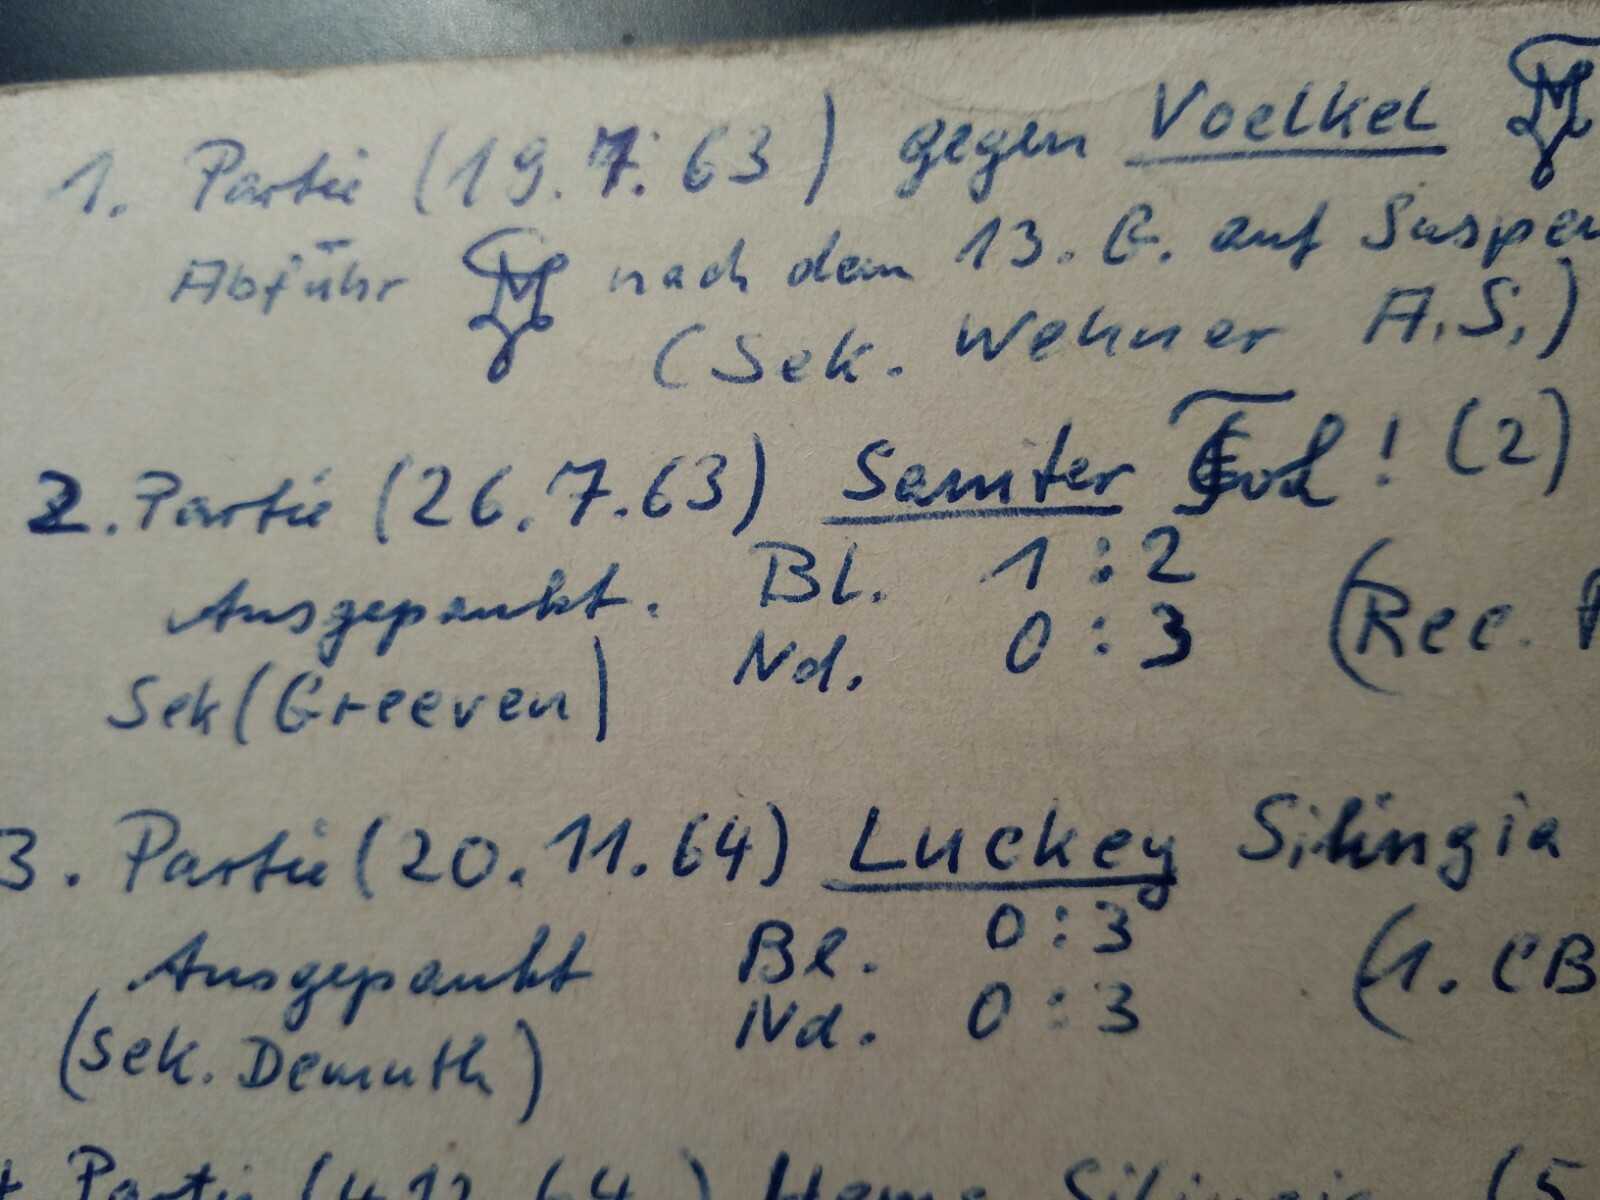 1. Partie (19.7.63) gegen Voelkel
Abführ nach dem 13. G. auf Suspen
(Sek. Wehner A.S.)
2. Partie (26.7.63) Semiter ! (2)
Ausgepaukt. Bl. 1:2
Nd. 0:3 (Rec.
Sek (Greeven)
3. Partie (20.11.64) Luckey Silingia
Ausgepaukt Bl. 0:3
Nd. 0:3 (1. CB
(Sek. Demuth)
Partie (4.12.64) Silingia (5